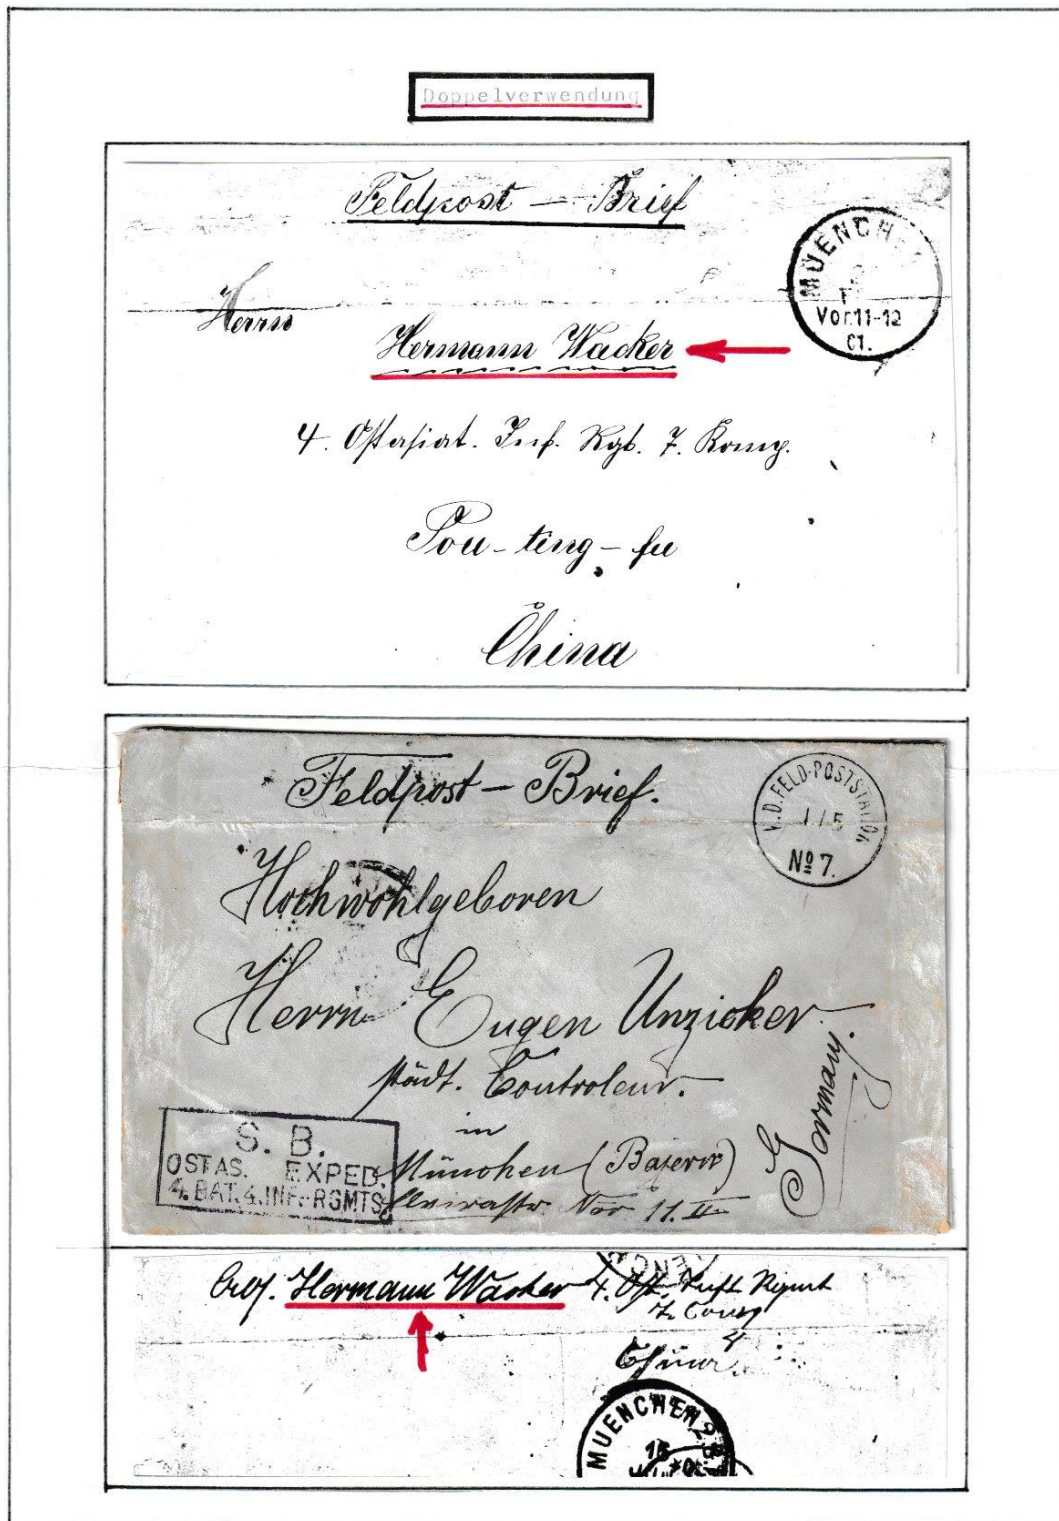 Doppelverwendung
Feldpost — Brief
MUENCHE
Vor.11-12
01.
Herrn
Hermann Wacker
4. Ostasiat. Inf. Rgt. 7. Komp.
Pou-ting-fu
China
Feldpost — Brief.
K.D. FELD-POSTSTATION
1/5
No 7.
Hochwohlgeboren
Herrn Eugen Unzicker
städt. Controleur.
in
München (Bayern)
Germany.
S. B.
OSTAS. EXPED.
4. BAT. 4. INF.-RGMTS.
Nro 11. II
Hermann Wacker 4. Ost.
7. Comp
China
MUENCHEN 2